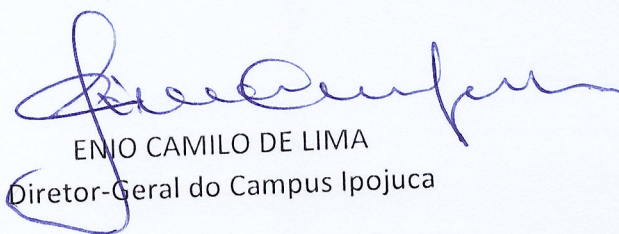 ENIO CAMILO DE LIMA
Diretor-Geral do Campus Ipojuca